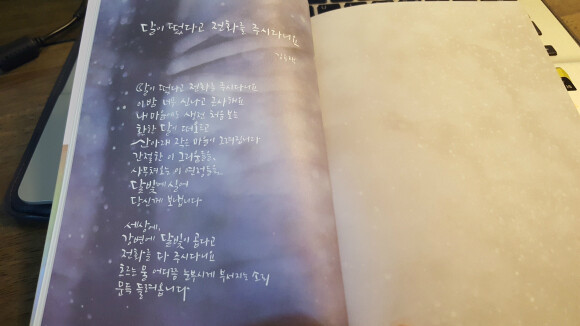 달이 떴다고 전화를 주시다니요
김용택
달이 떴다고 전화를 주시다니요
이 밤 너무 신나고 근사해요
내 마음에도 생전 처음 보는
환한 달이 떠오르고
산아래 작은 마을이 그려집니다
간절한 이 그리움들을,
사무쳐오는 이 연정들을,
달빛에 실어
당신께 보냅니다
세상에,
강변에 달빛이 곱다고
전화를 다 주시다니요
흐르는 물 어디쯤 눈부시게 부서지는 소리
문득 들려옵니다